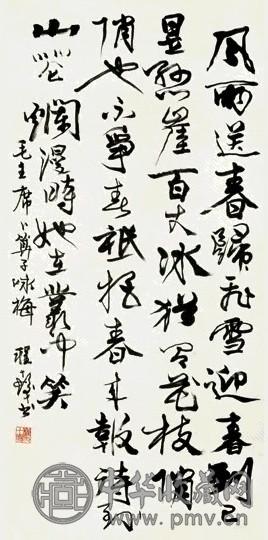 風雨送春歸飛雪迎春到已
是懸崖百丈冰猶有花枝俏
俏也不爭春祇把春来報待到
山花爛漫時她在叢中笑
毛主席卜算子咏梅 程书
中华收藏网
www.pmv.cn